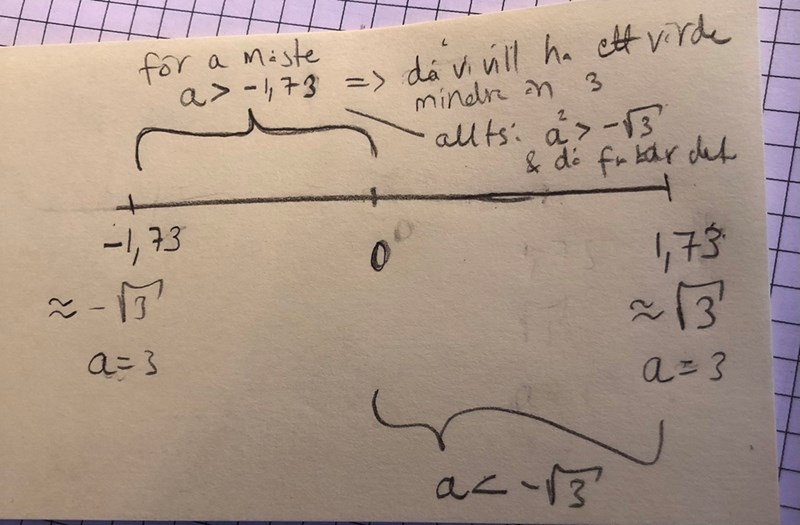 för a måste
a > -1,73 => då vi vill ha ett värde
mindre än 3
allts: a² > -√3
& då funkar det
-1,73 0 1,73
≈ -√3 ≈ √3
a = 3 a = 3
a < -√3